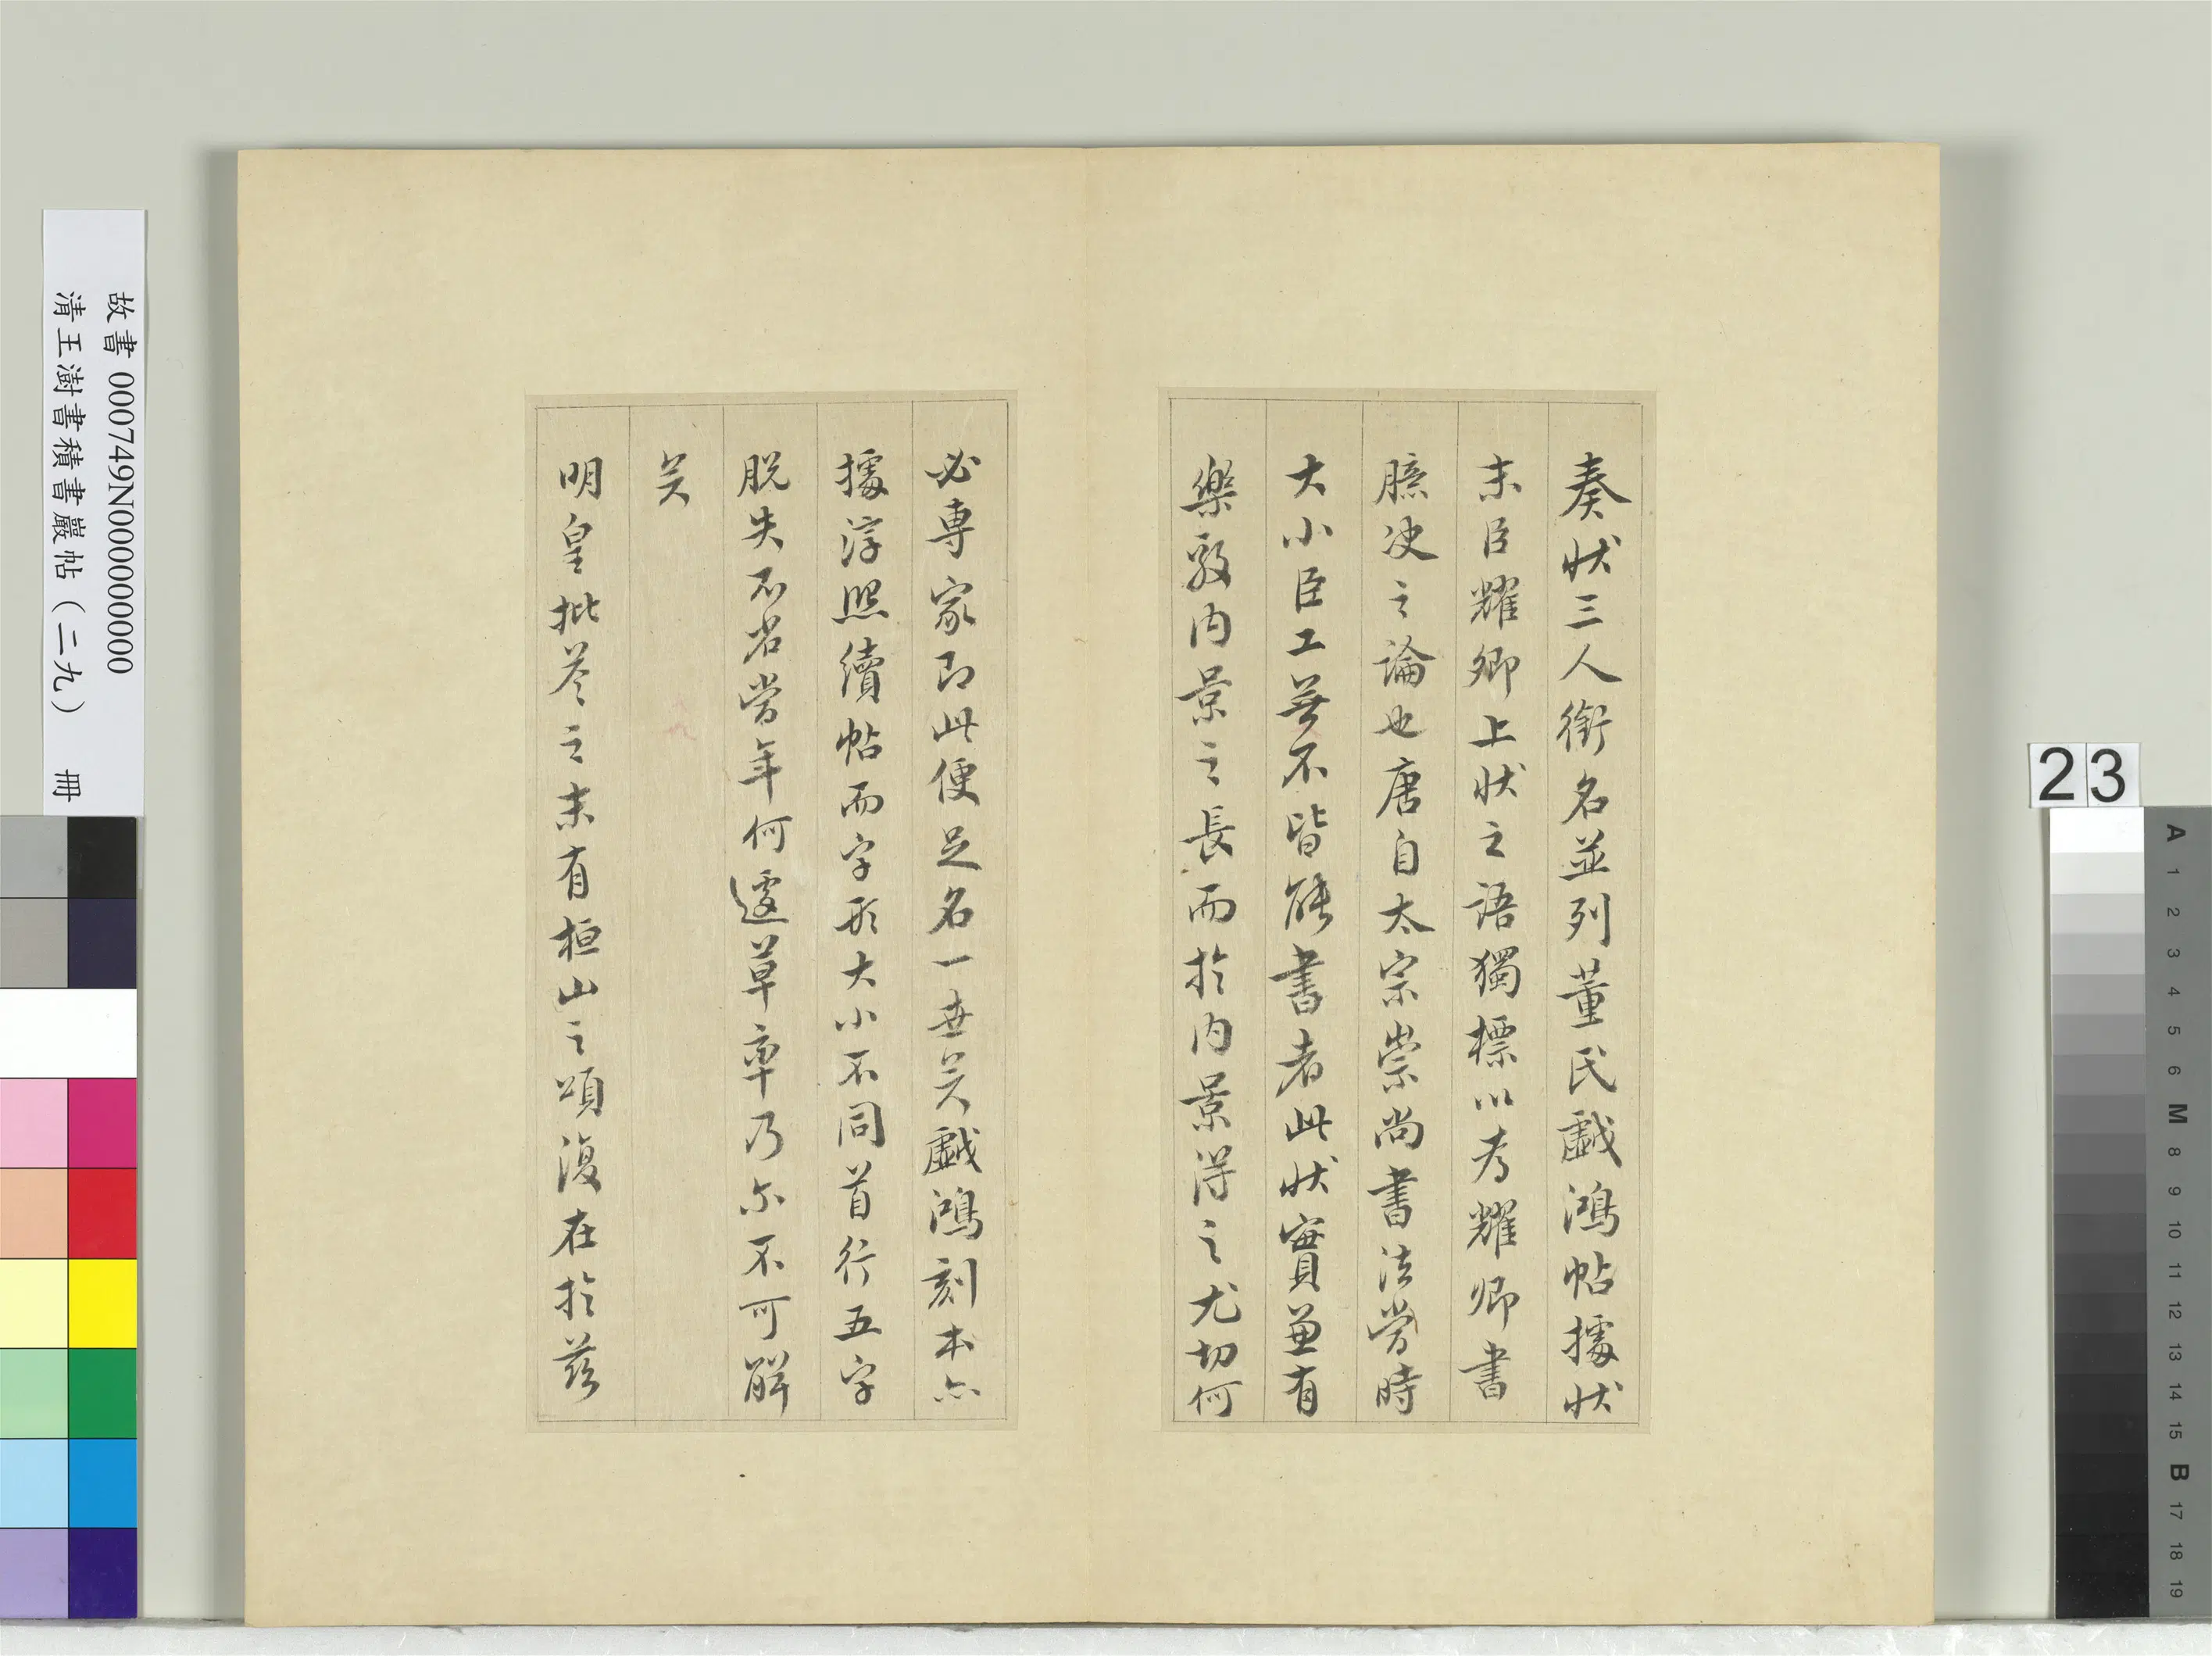 奏狀三人銜名並列董氏戲鴻帖據狀
末臣耀卿上狀之語獨標以為耀卿書
臆決之論也唐自太宗崇尚書法當時
大小臣工無不皆能書者此狀實兼有
樂毅內景之長而於內景得之尤切何
必專家即此便足名一世矣戲鴻刻本亦
據淳熙續帖而字形大小不同首行五字
脫失不省當年何遽草率乃尔不可解
矣
明皇批答之末有桓山之頌復在於茲
故書 000749N000000000
清王澍書積書巖帖（二九） 冊
23
A 1 2 3 4 5 6 M 8 9 10 11 12 13 14 15 B 17 18 19